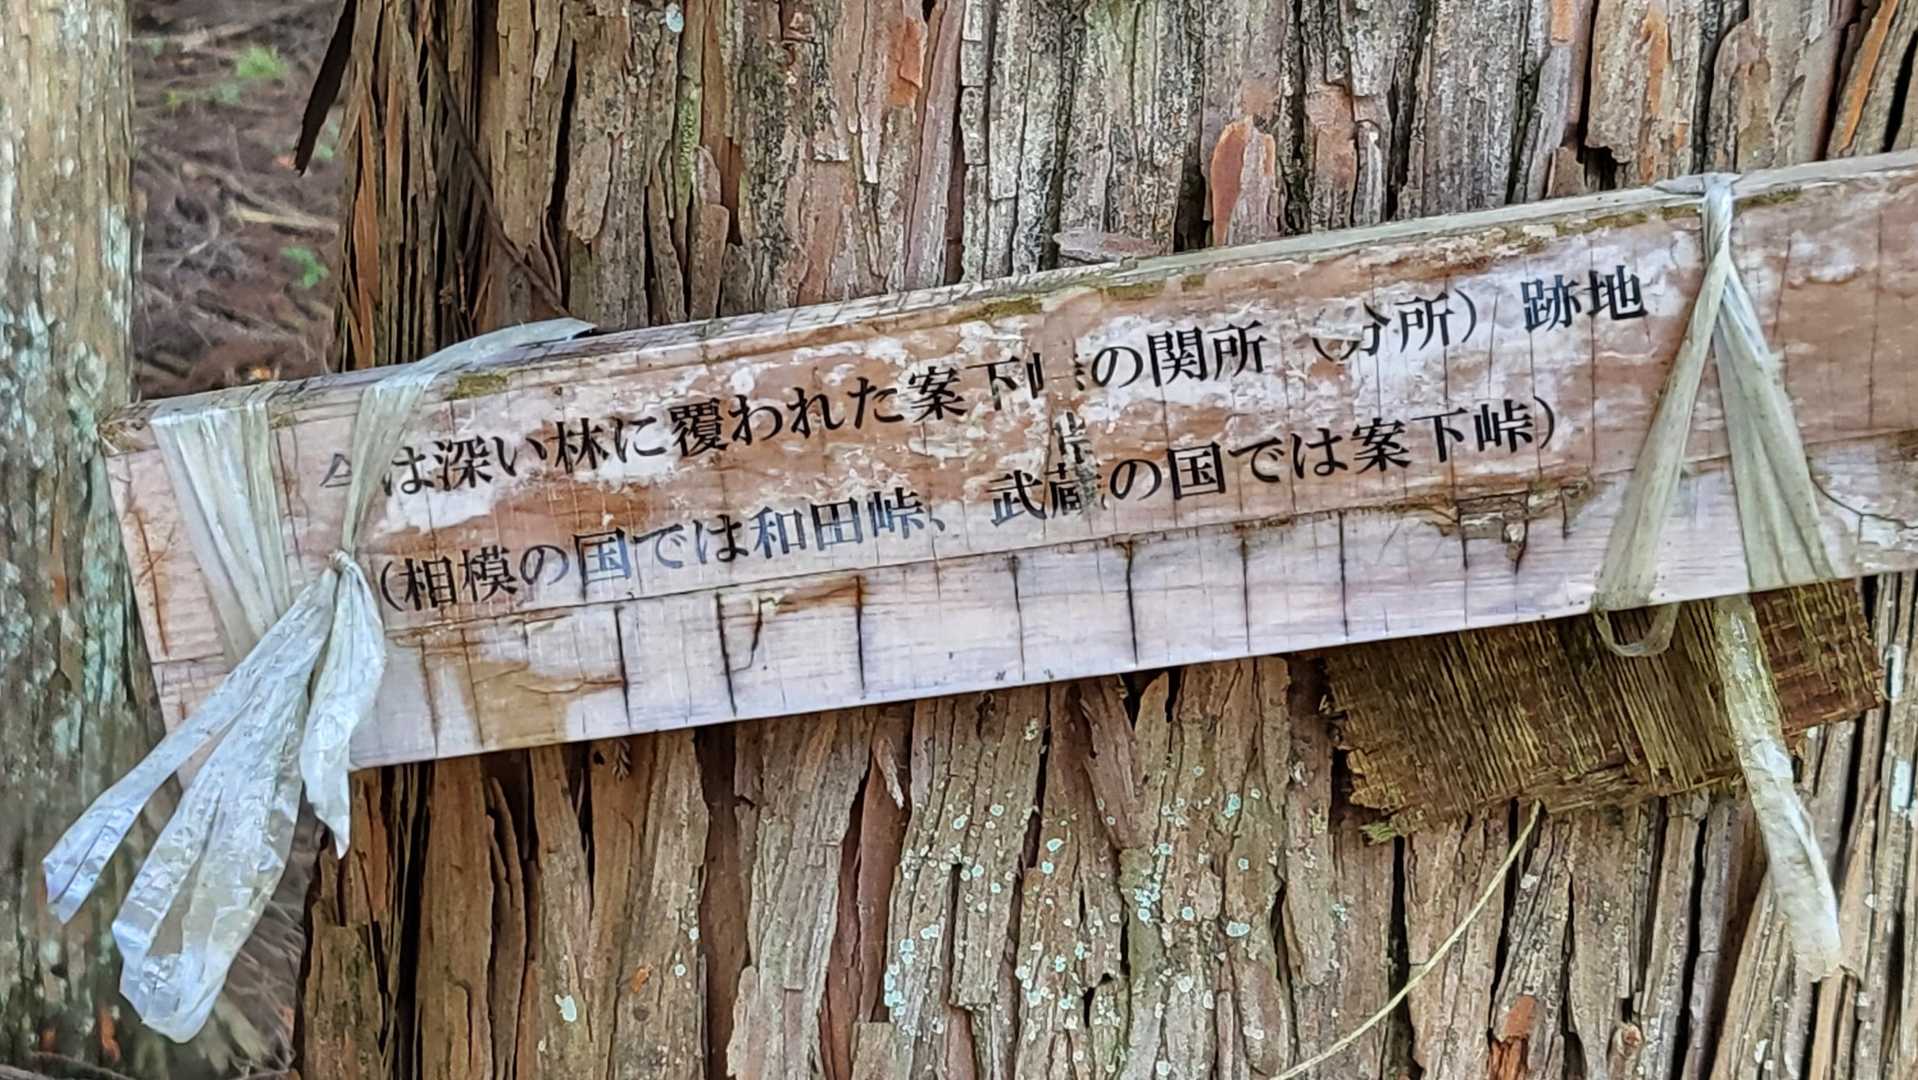 今は深い林に覆われた案下峠の関所（分所）跡地
（相模の国では和田峠、武蔵の国では案下峠）